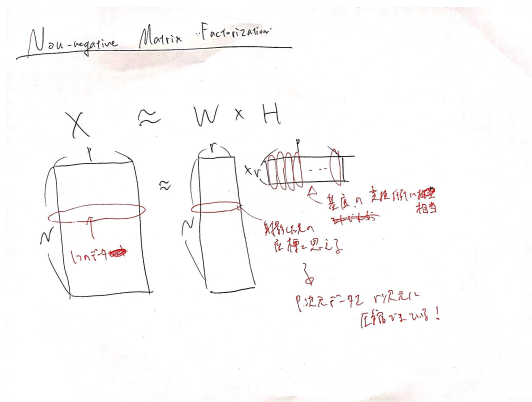 Non-negative Matrix Factorization
X ≈ W × H
P
r
P
N
≈
N
×
r
...
1つのデータ
基底の
に
相当
の
座標と思える
P次元データを r次元に
圧縮できている!